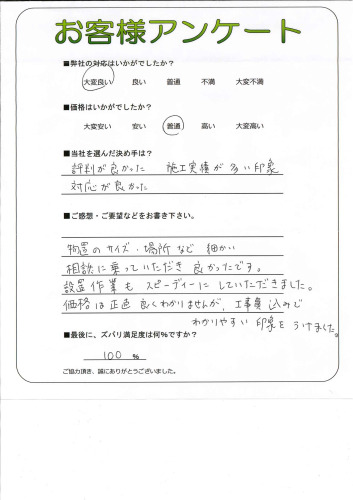 お客様アンケート
■弊社の対応はいかがでしたか？
大変良い 良い 普通 不満 大変不満
■価格はいかがでしたか？
大変安い 安い 普通 高い 大変高い
■当社を選んだ決め手は？
評判が良かった 施工実績が多い印象
対応が良かった
■ご感想・ご要望などをお書き下さい。
物置のサイズ・場所など 細かい
相談に乗っていただき良かったです。
設置作業もスピーディーにしていただきました。
価格は正直良くわかりませんが、工事費込みで
わかりやすい印象をうけました。
■最後に、ズバリ満足度は何％ですか？
100 %
ご協力頂き、誠にありがとうございました。